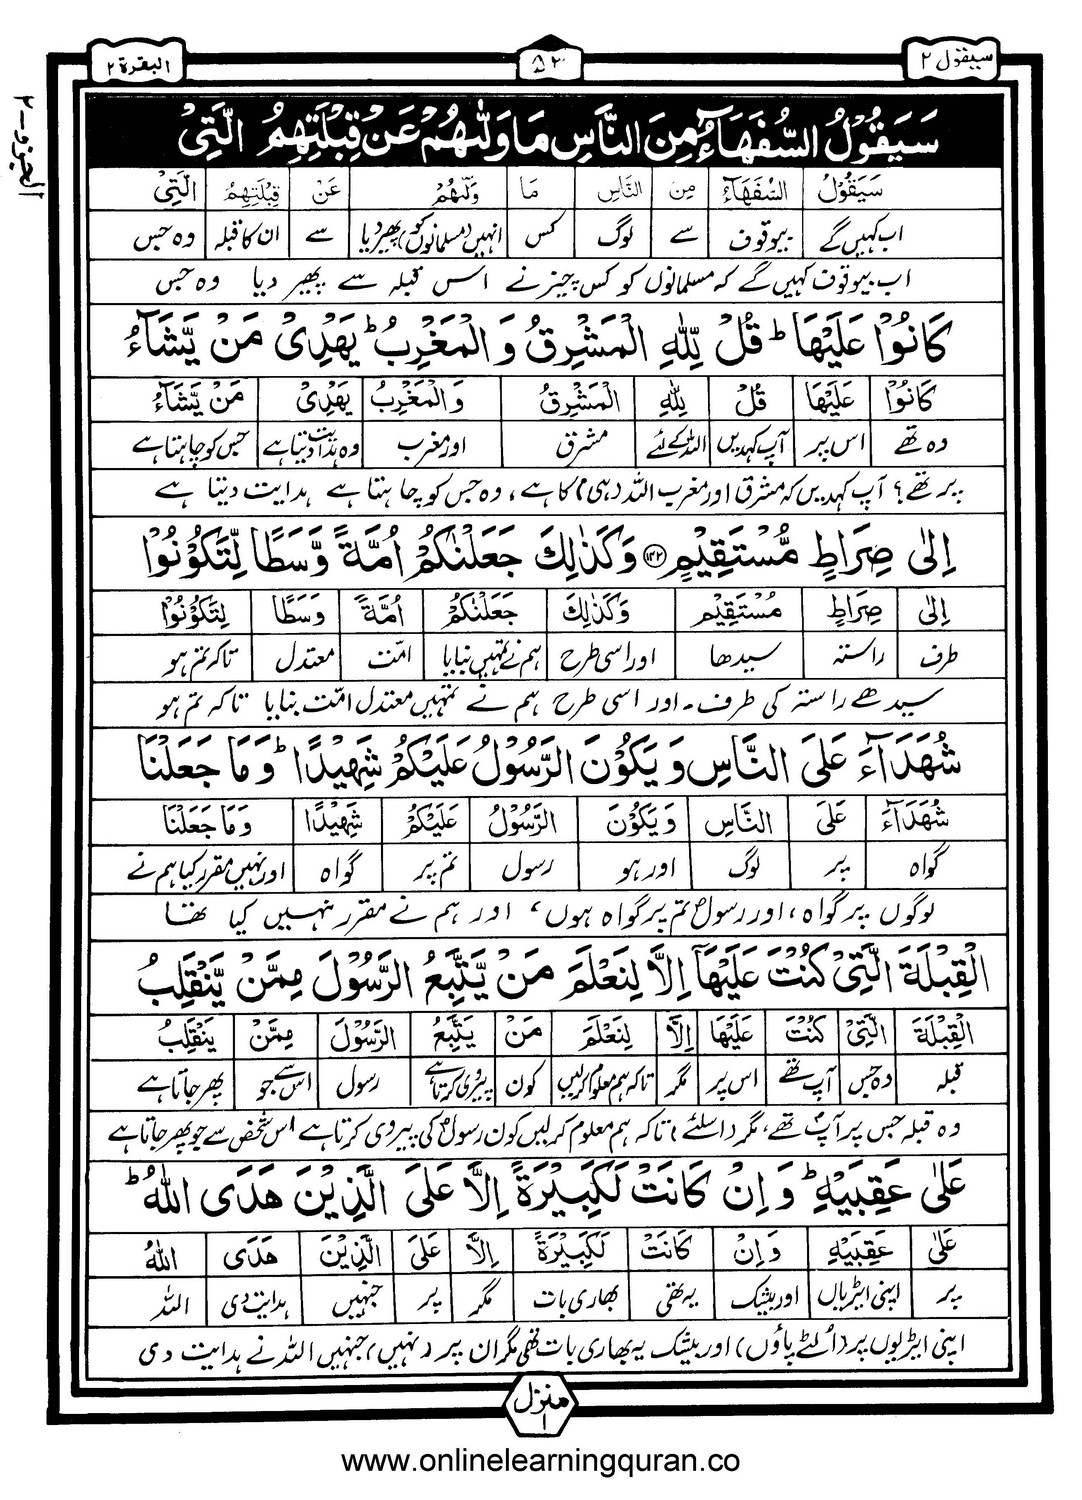 سیقول ۲
۵۲
البقرة ۲
الجزو-۲
سَيَقُوْلُ السُّفَهَآءُ مِنَ النَّاسِ مَا وَلّٰىهُمْ عَنْ قِبْلَتِهِمُ الَّتِيْ
سَيَقُوْلُ السُّفَهَآءُ مِنَ النَّاسِ مَا وَلّٰىهُمْ عَنْ قِبْلَتِهِمُ الَّتِيْ
اب کہیں گے بیوقوف سے لوگ کس انہیں (مسلمانوں کو) پھیر دیا سے ان کا قبلہ وہ جس
اب بیوقوف کہیں گے کہ مسلمانوں کو کس چیز نے اس قبلہ سے پھیر دیا وہ جس
كَانُوْا عَلَيْهَا ؕ قُلْ لِّلّٰهِ الْمَشْرِقُ وَ الْمَغْرِبُ ؕ يَهْدِىْ مَنْ يَّشَآءُ
كَانُوْا عَلَيْهَا قُلْ لِلّٰهِ الْمَشْرِقُ وَ الْمَغْرِبُ يَهْدِىْ مَنْ يَّشَآءُ
وہ تھے اس پر آپ کہدیں اللہ کے لئے مشرق اور مغرب وہ ہدایت دیتا ہے جس کو چاہتا ہے
پر تھے؟ آپ کہدیں کہ مشرق اور مغرب اللہ (ہی) کا ہے، وہ جس کو چاہتا ہے ہدایت دیتا ہے
اِلٰى صِرَاطٍ مُّسْتَقِيْمٍ ۝۱۴۲ وَكَذٰلِكَ جَعَلْنٰكُمْ اُمَّةً وَّسَطًا لِّتَكُوْنُوْا
اِلٰى صِرَاطٍ مُسْتَقِيْمٍ وَكَذٰلِكَ جَعَلْنٰكُمْ اُمَّةً وَسَطًا لِتَكُوْنُوْا
طرف راستہ سیدھا اور اسی طرح ہم نے تمہیں بنایا امّت معتدل تاکہ تم ہو
سیدھے راستہ کی طرف۔ اور اسی طرح ہم نے تمہیں معتدل امّت بنایا تاکہ تم ہو
شُهَدَآءَ عَلَى النَّاسِ وَيَكُوْنَ الرَّسُوْلُ عَلَيْكُمْ شَهِيْدًا ؕ وَمَا جَعَلْنَا
شُهَدَآءَ عَلَى النَّاسِ وَيَكُوْنَ الرَّسُوْلُ عَلَيْكُمْ شَهِيْدًا وَمَا جَعَلْنَا
گواہ پر لوگ اور ہو رسول تم پر گواہ اور نہیں مقرر کیا ہم نے
لوگوں پر گواہ، اور رسولؐ تم پر گواہ ہوں، اور ہم نے مقرر نہیں کیا تھا
الْقِبْلَةَ الَّتِيْ كُنْتَ عَلَيْهَآ اِلَّا لِنَعْلَمَ مَنْ يَّتَّبِعُ الرَّسُوْلَ مِمَّنْ يَّنْقَلِبُ
الْقِبْلَةَ الَّتِيْ كُنْتَ عَلَيْهَا اِلَّا لِنَعْلَمَ مَنْ يَتَّبِعُ الرَّسُوْلَ مِمَّنْ يَنْقَلِبُ
قبلہ وہ جس آپ تھے اس پر مگر تاکہ ہم معلوم کرلیں کون پیروی کرتا ہے رسول اس سے جو پھر جاتا ہے
وہ قبلہ جس پر آپؐ تھے، مگر (اسلئے) تاکہ ہم معلوم کرلیں کون رسولؐ کی پیروی کرتا ہے اس شخص سے جو پھر جاتا ہے
عَلٰى عَقِبَيْهِ ؕ وَ اِنْ كَانَتْ لَكَبِيْرَةً اِلَّا عَلَى الَّذِيْنَ هَدَى اللّٰهُ ؕ
عَلٰى عَقِبَيْهِ وَ اِنْ كَانَتْ لَكَبِيْرَةً اِلَّا عَلَى الَّذِيْنَ هَدَى اللّٰهُ
پر اپنی ایڑیاں اور بیشک یہ تھی بھاری بات مگر پر جنہیں ہدایت دی اللہ
اپنی ایڑیوں پر (الٹے پاؤں) اور بیشک یہ بھاری بات تھی مگر ان پر (نہیں) جنہیں اللہ نے ہدایت دی
منزل
۱
www.onlinelearningquran.co